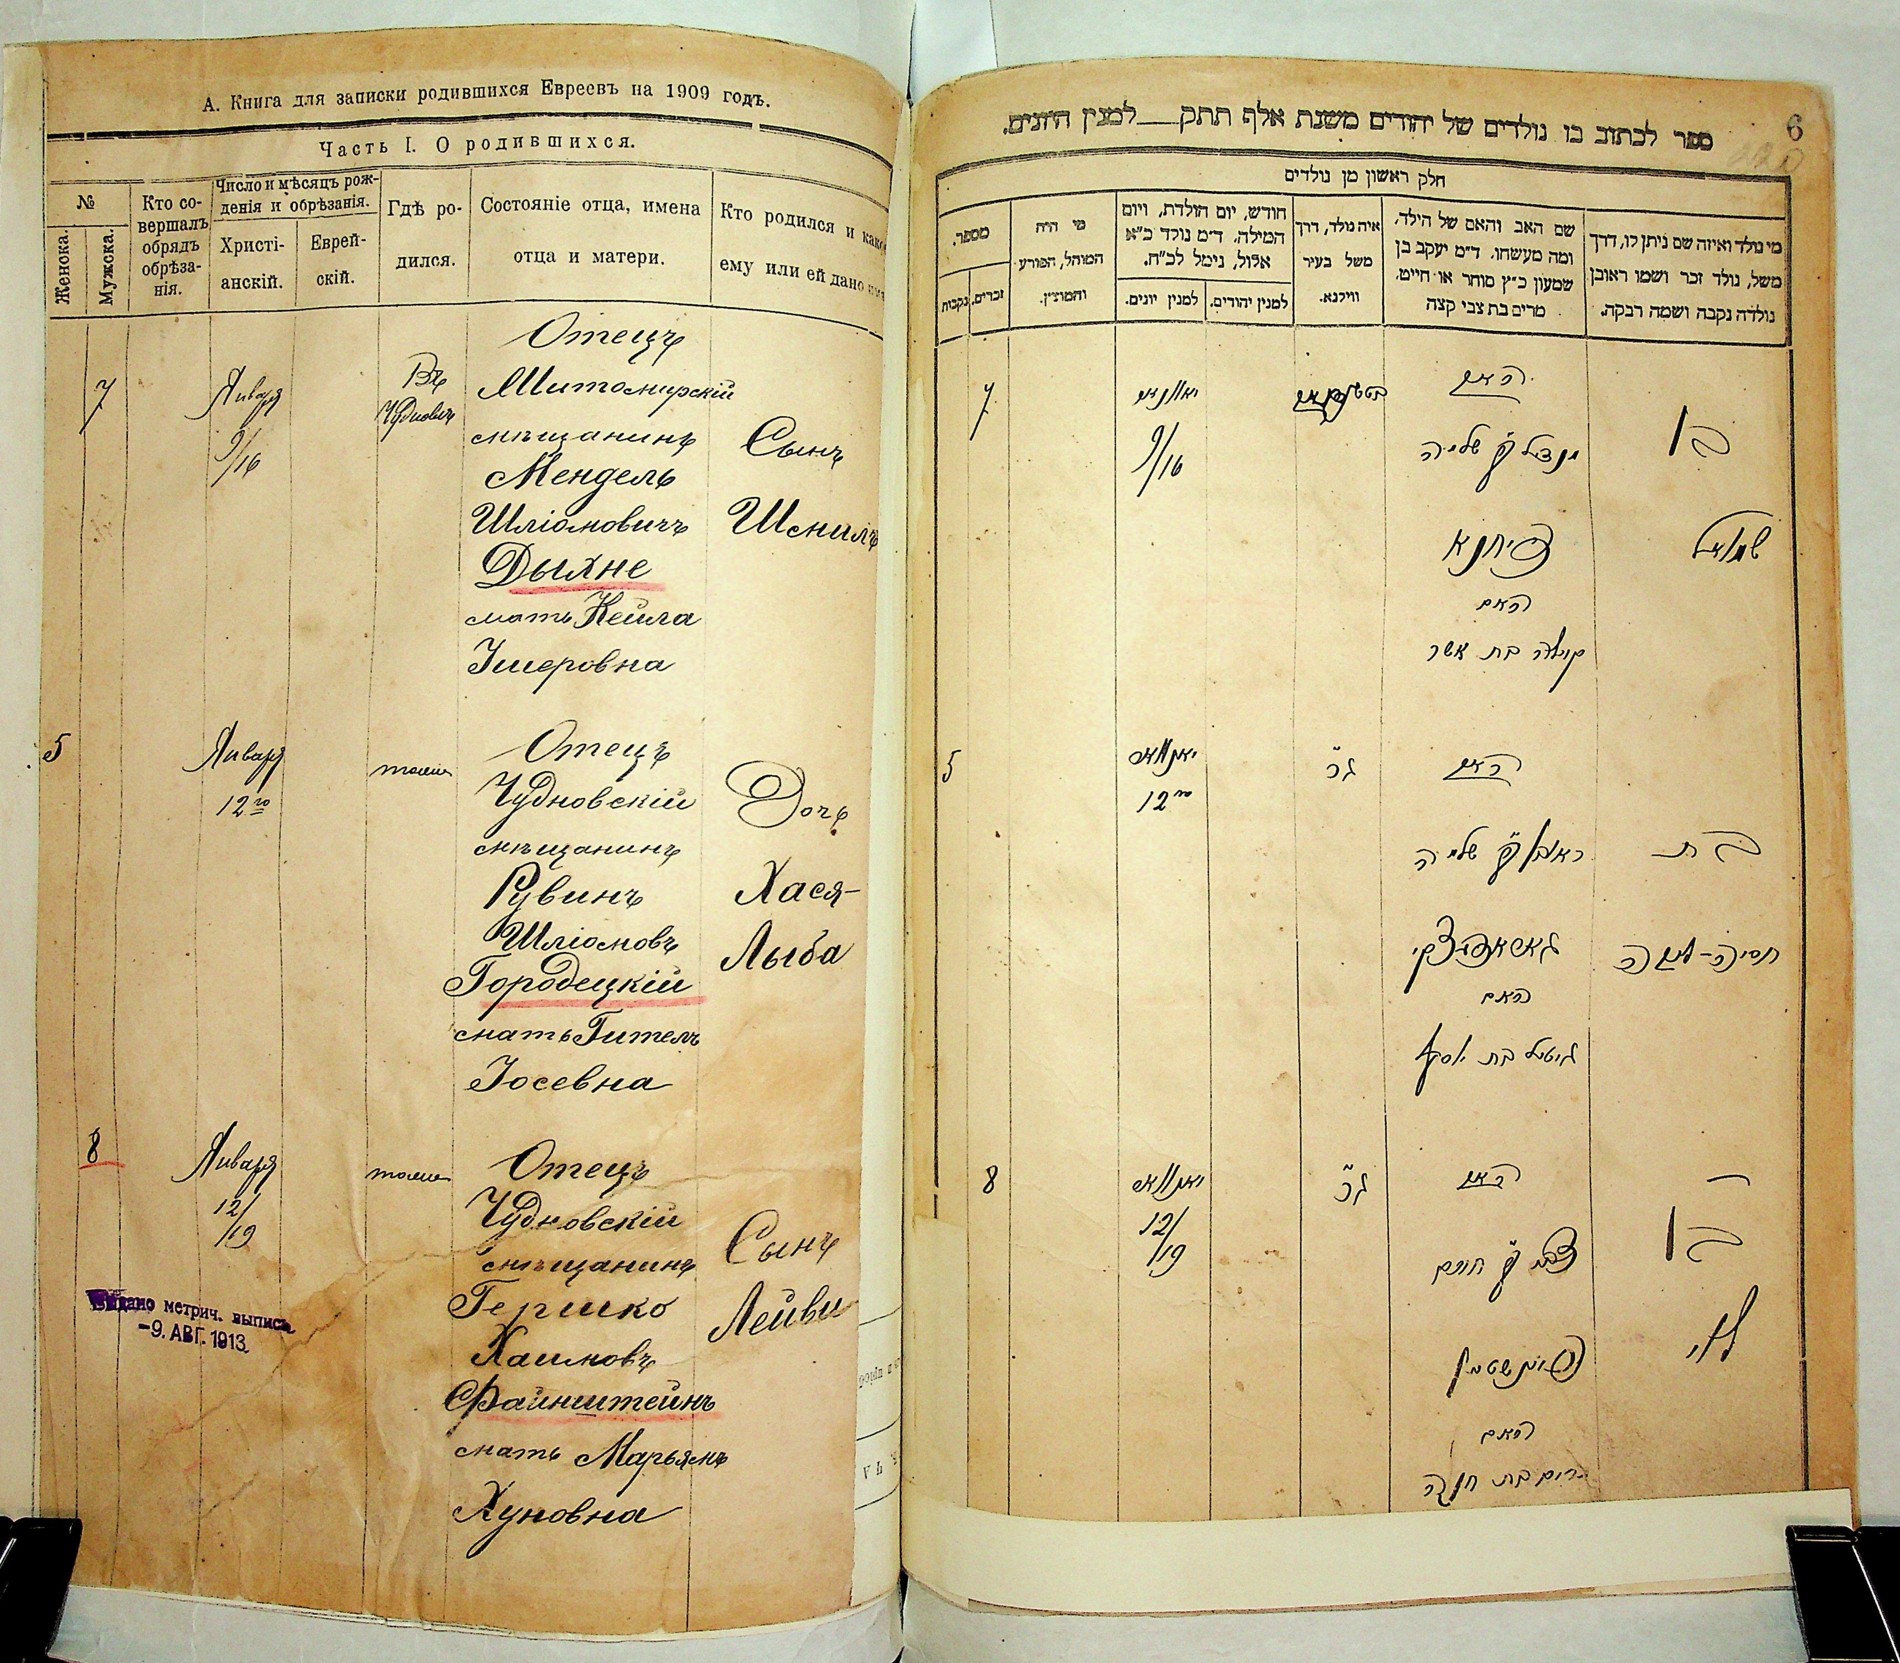 А. Книга для записки родившихся Евреевъ на 1909 годъ.
Часть I. О родившихся.
№
Женска.
Мужска.
Кто со-
вершалъ
обрядъ
обрѣза-
нія.
Число и мѣсяцъ рож-
денія и обрѣзанія.
Христі-
анскій.
Еврей-
скій.
Гдѣ ро-
дился.
Состояніе отца, имена
отца и матери.
Кто родился и како
ему или ей дано
7
Января
9/16
Въ
Чудновѣ
Отецъ
Житомирскій
мѣщанинъ
Мендель
Шліомовичъ
Дыхне
мать Кейла
Ушеровна
Сынъ
Шмилъ
5
Января
12го
тоже
Отецъ
Чудновскій
мѣщанинъ
Рувинъ
Шліомовъ
Городецкій
мать Гитель
Іосевна
Дочь
Хася-
Лыба
8
Января
12/19
тоже
Отецъ
Чудновскій
мѣщанинъ
Гершко
Хаимовъ
Файнштейнъ
мать Марьямъ
Хуновна
Сынъ
Лейви
Выдано метрич. выпись
-9. АВГ. 1913.
6
ספר לכתוב בו נולדים של יהודים משנת אלף תתק למנין היונים.
חלק ראשון מן נולדים
מי נולד ואיזה שם ניתן לו, דרך
משל, נולד זכר ושמו ראובן
נולדה נקבה ושמה רבקה.
שם האב והאם של הילד,
ומה מעשהו. ד"מ יעקב בן
שמעון כ"ץ סוחר או חייט.
מרים בת צבי קצה
איה נולד, דרך
משל בעיר
ווילנא.
חודש, יום הולדת, ויום
המילה. ד"מ נולד כ"א
אלול, נימל לכ"ח.
למנין יהודים.
למנין יונים.
מי היה
המוהל, הפורע
והמוצץ.
מספר.
זכרים.
נקבות
7
9/16
האב
מענדיל שלמה
דיחנא
האם
קיילה בת אשר
בן
שמואל
5
יאנוואר
12го
האב
ראובן שלמה
האם
גיטיל בת יוסף
בת
חסיה-ליבה
8
יאנוואר
12/19
האב
חיים
האם
בן
לוי